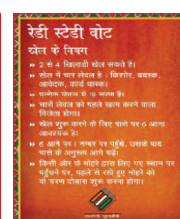 रेडी स्टेडी वोट
खेल के नियम
2 से 4 खिलाड़ी खेल सकते हैं।
खेल में चार लेवल है : किशोर, वयस्क,
आवेदक, कार्ड धारक।
प्रत्येक लेवल में 10 स्थान हैं।
चारों लेवल को पहले खत्म करने वाला
विजेता होगा।
खेल शुरू करने के लिए पासे पर 6 आना
आवश्यक है।
6 आने पर 1 नम्बर पर पहुंचे, उसके बाद
पासे के अनुसार आगे बढ़ें।
किसी और के मोहरे द्वारा लिए गए स्थान पर
पहुँचने पर, पहले से रखे हुए मोहरे को
वो चरण दोबारा शुरू करना होगा।